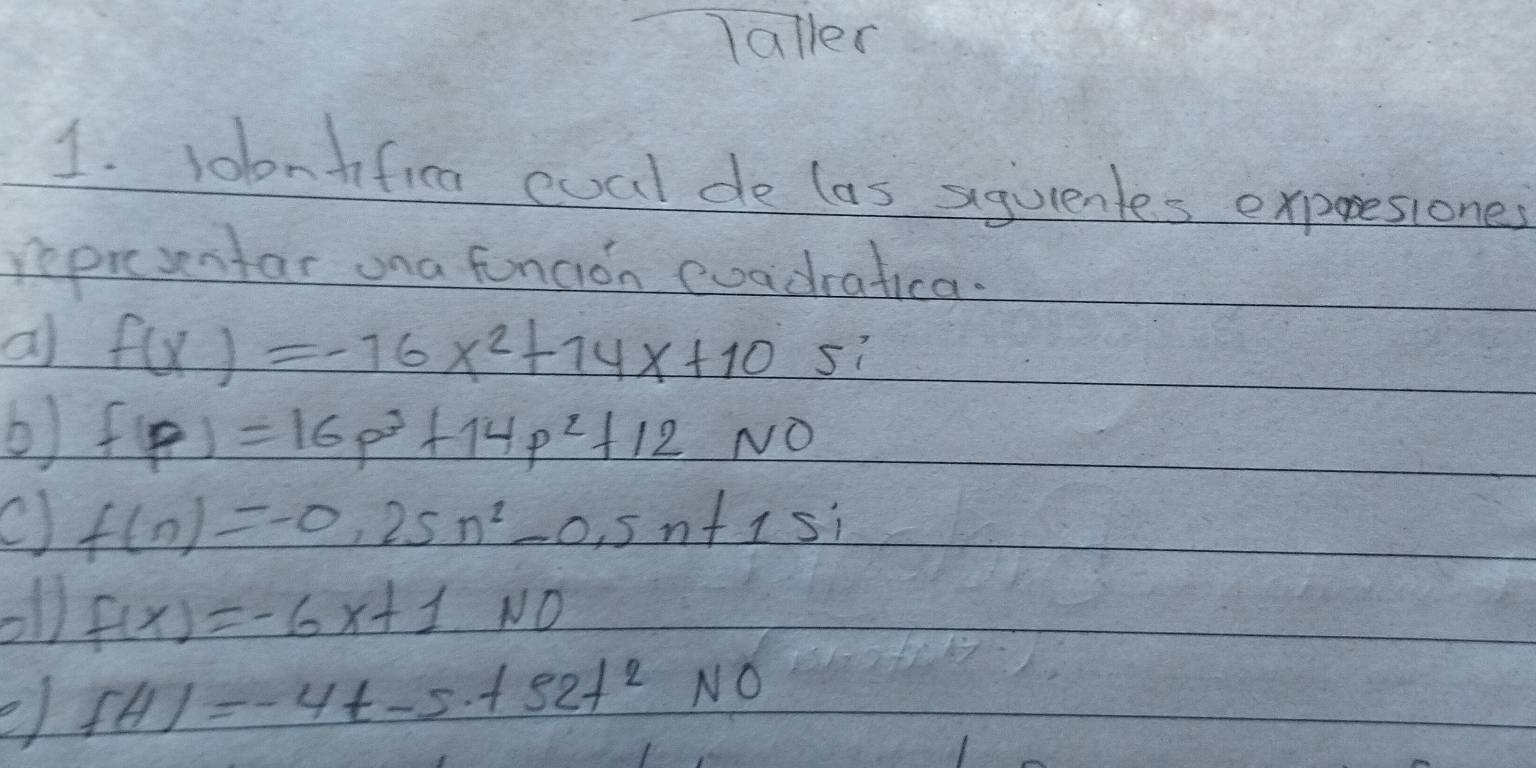 Taller
1. Identifica cual de las siguientes expresiones
representar una función cuadratica.
a) f(x) = -16x²+14x+10 si
b) f(p) = 16p³+14p²+12 NO
c) f(n) = -0,25n²-0,5n+1 si
d) f(x) = -6x+1 NO
e) f(t) = -4t-5.+52t² NO